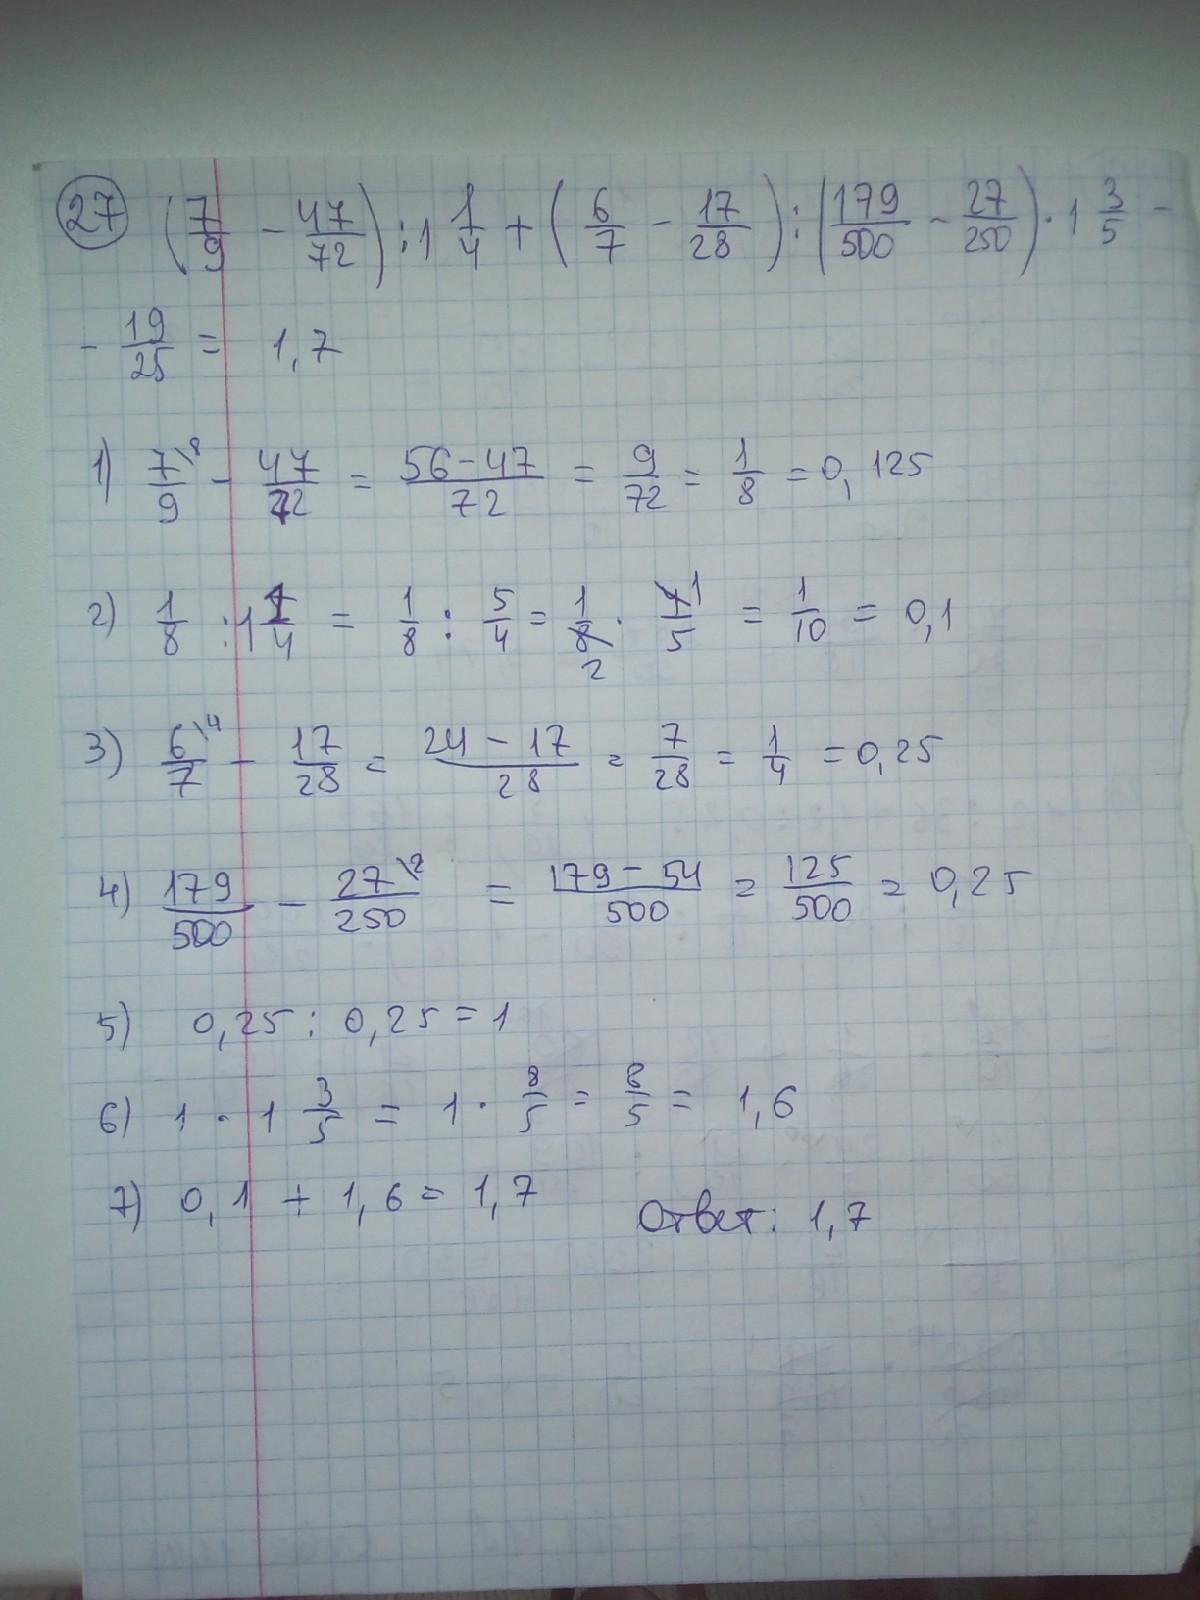 27 (7/9 - 47/72) : 1 1/4 + (6/7 - 17/28) : (179/500 - 27/250) · 1 3/5 -
- 19/25 = 1,7
1) 7\8/9 - 47/72 = 56-47/72 = 9/72 = 1/8 = 0,125
2) 1/8 : 1 1/4 = 1/8 : 5/4 = 1/8 2 · 4 1/5 = 1/10 = 0,1
3) 6\4/7 - 17/28 = 24-17/28 = 7/28 = 1/4 = 0,25
4) 179/500 - 27\2/250 = 179-54/500 = 125/500 = 0,25
5) 0,25 : 0,25 = 1
6) 1 · 1 3/5 = 1 · 8/5 = 8/5 = 1,6
7) 0,1 + 1,6 = 1,7 Ответ: 1,7